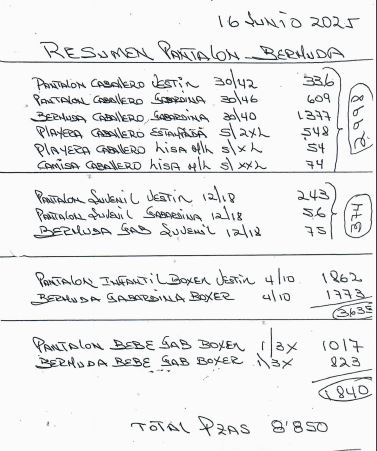 16 JUNIO 2025
RESUMEN PANTALON BERMUDA
PANTALON CABALLERO VESTIR 30/42 336
PANTALON CABALLERO GABARDINA 30/46 609
BERMUDA CABALLERO GABARDINA 30/40 1377
PLAYERA CABALLERO ESTAMPADA S/2XL 548
PLAYERA CABALLERO LISA M/L S/XL 54
CAMISA CABALLERO LISA M/L S/XXL 74
2'998
PANTALON JUVENIL VESTIR 12/18 243
PANTALON JUVENIL GABARDINA 12/18 56
BERMUDA GAB JUVENIL 12/18 75
374
PANTALON INFANTIL BOXER VESTIR 4/10 1862
BERMUDA GABARDINA BOXER 4/10 1773
3635
PANTALON BEBE GAB BOXER 1/3X 1017
BERMUDA BEBE GAB BOXER 1/3X 823
1840
TOTAL PZAS 8'850